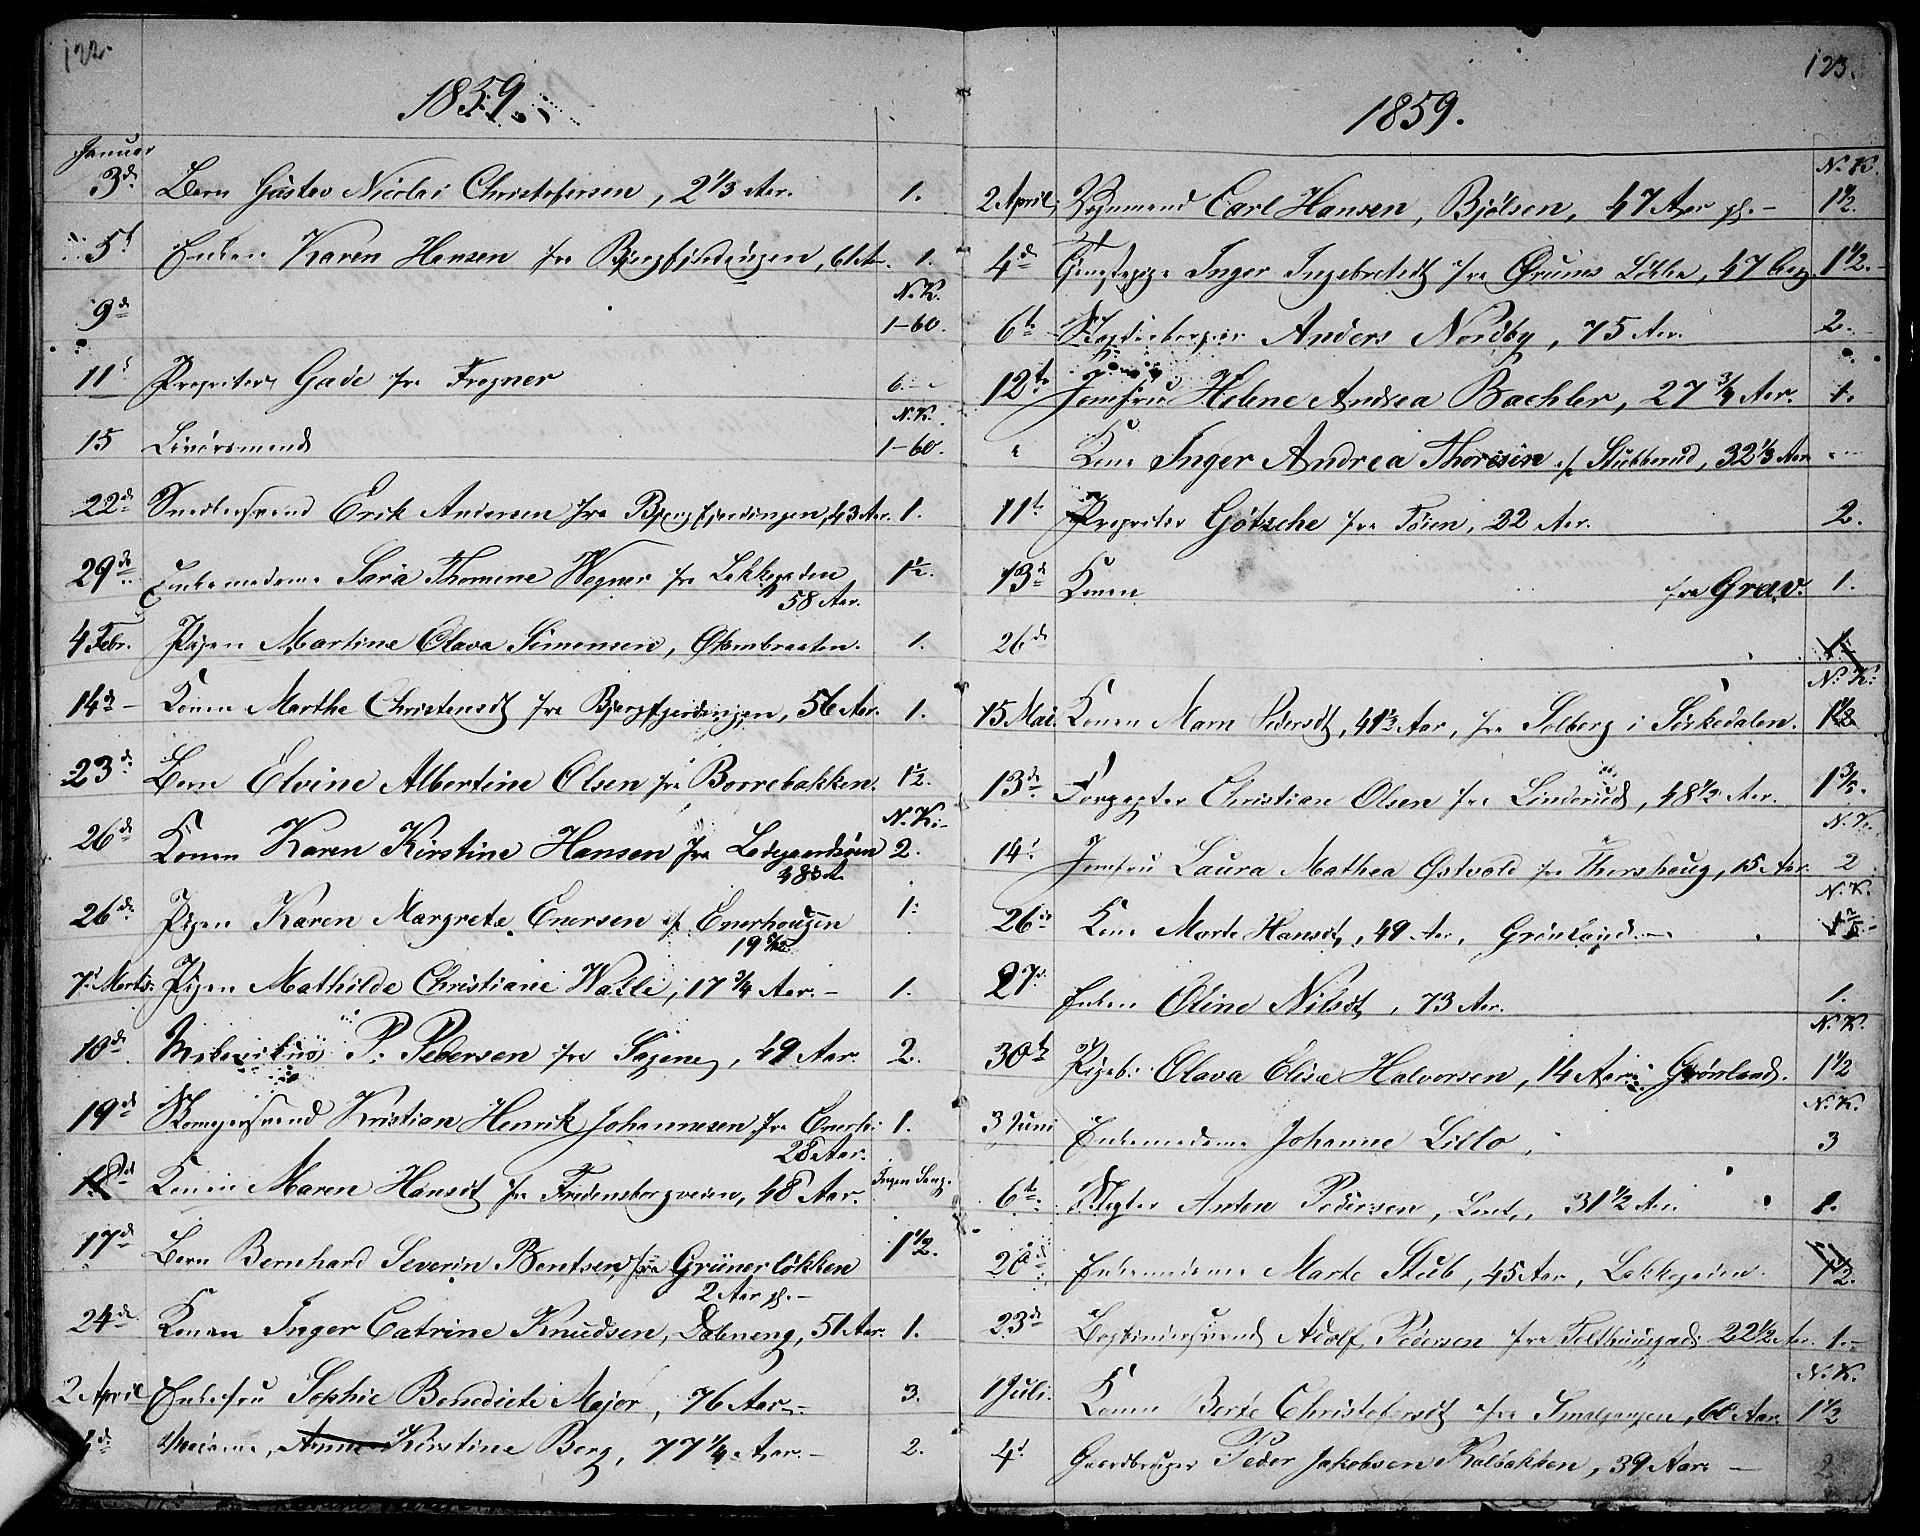 122.
1859.
Januar
3d. Barn Gustav Nicolai Christofersen, 2 1/3 Aar. 1.
5t Enken Karen Hansen fra Bjergfjerdingen, 61 Aar. 1.
N. K.
9de 1-60.
11t Propritær Gade fra Frogner 6.
N. K.
15 1-60.
22de Snedkersvend Erik Andersen fra Bjergfjerdingen, 43 Aar. 1.
29de Enkemadame Sara Thomine Wegner fra Lakkegaden 1 1/2.
58 Aar.
4 Febr. Pigen Martine Olava Simensen, Økernbraaten. 1.
14de Konen Marthe Christensdt fra Bjergfjerdingen, 56 Aar. 1.
23de Barn Elvine Albertine Olsen fra Borrebakken. 1 1/2.
N. K.
26de Konen Karen Kirstine Hansen fra Ladegaardsøen 2.
26de Pigen Karen Margrete Enersen f Enerhougen 1.
7 Marts. Pigen Mathilde Christiane Walle, 17 3/4 Aar. 1.
10de P. Pedersen fra Sagene, 49 Aar. 2.
19de Kristian Henrik Johannesen fra Enerh: 1.
28 Aar.
18de Konen Maren Hansdt fra Fredensborgveien, 48 Aar. Ingen Sang.
17de Barn Bernhard Severin Bentsen, fra Grünerløkken 1 1/2.
2 Aar
24de Konen Inger Catrine Knudsen, Dæleneng, 51 Aar. 1.
2 April Enkefru Sophie Benedicte Major, 76 Aar. 3.
4de Madame, Anne Kirstine Berg, 77 1/4 Aar. 2.
123.
1859.
N. K.
2 April Vognmand Carl Hansen, Bjølsen, 47 Aar 1 1/2.
4de Tjenestepige Inger Ingebretsdt fra Ørums Løkke, 47 1 1/2.
6te Anders Nordby, 75 Aar. 2.
12te Jomfru Helene Andrea Bachler, 27 3/4 Aar. 1.
Kone Inger Andrea Thoresen f Stubberud, 32 1/3 Aar
11te Propritær Götzche fra Tøien, 22 Aar. 2.
13de Konen fra Grav. 1.
26de 1.
N. K.
15 Mai. Konen Marn Pedersdt, 41 1/2 Aar, fra Solberg i Sørkedalen. 1 1/2
13de Forpagter Christian Olsen fra Linderud, 48 1/2 Aar. 1 3/5.
N. K.
14 Jomfru Laura Mathea Østvold fra Thorshoug, 15 Aar. 2
N. K.
26de Kone Marte Hansdt, 49 Aar, Grønland.
27d. Enken Oline Nilsdt, 73 Aar. 1.
N. K.
30te Pigeb: Olava Elise Halvorsen, 14 Aar Grønland. 1 1/2
N. K.
3 Juni Enkemadame Johanne Lillo, 3
6te Slagter Anton Pedersen, 31 1/2 Aar. 1.
20de Enkemadame Marte Stub, 45 Aar, Lakkegaden. 1 1/2.
23de Bogbindersvend Adolf Pedersen fra Telthusgad: 22 1/2 Aar. 1.
N. K.
1 Juli. Konen Berte Christofersdt fra Smalgangen, 60 Aar. 1 1/2
4t Gaardbruger Peder Jakobsen Kalbakken, 39 Aar. 2